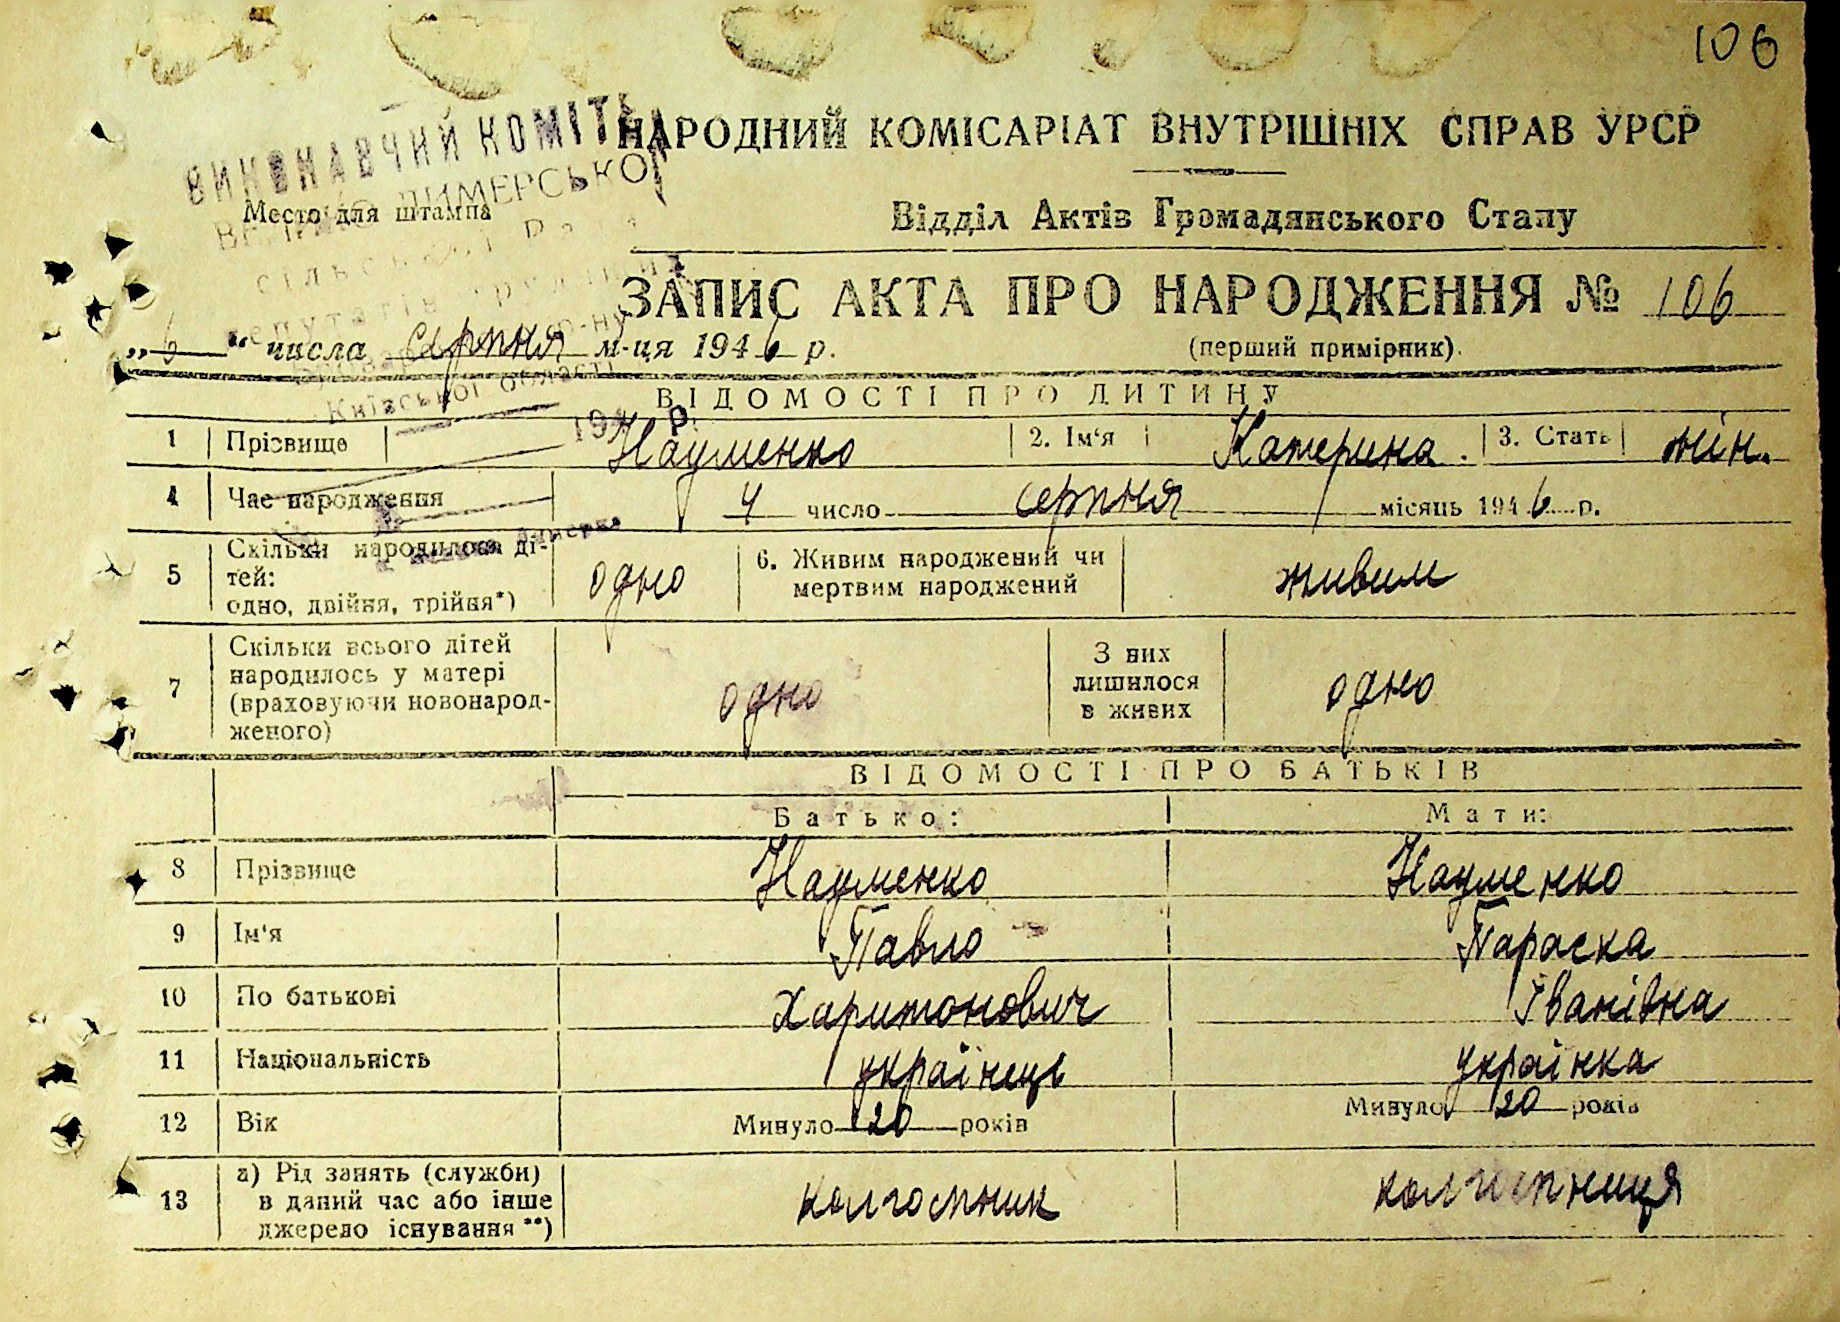 106
НАРОДНИЙ КОМІСАРІАТ ВНУТРІШНІХ СПРАВ УРСР
ВИКОНАВЧИЙ КОМІТЕТ
ДИМЕРСЬКОЇ
Место для штампа
Відділ Актів Громадянського Стану
сільської Ради
депутатів трудящих
ЗАПИС АКТА ПРО НАРОДЖЕННЯ № 106
„6“ числа серпня м-ця 1946 р.
(перший примірник).
Київської області
ВІДОМОСТІ ПРО ДИТИНУ
194 р.
1 Прізвище Науменко 2. Ім‘я Катерина. 3. Стать жін.
4 Час народження 4 число серпня місяць 1946 р.
5 Скільки народилося ді-
тей:
одно, двійня, трійня*) одно 6. Живим народжений чи
мертвим народжений живим
7 Скільки всього дітей
народилось у матері
(враховуючи новонарод-
женого) одно З них
лишилося
в живих одно
ВІДОМОСТІ ПРО БАТЬКІВ
Батько: Мати:
8 Прізвище Науменко Науменко
9 Ім‘я Павло Параска
10 По батькові Харитонович Іванівна
11 Національність українець українка
12 Вік Минуло 20 років Минуло 20 років
13 а) Рід занять (служби)
в даний час або інше
джерело існування **) колгоспник колгоспниця